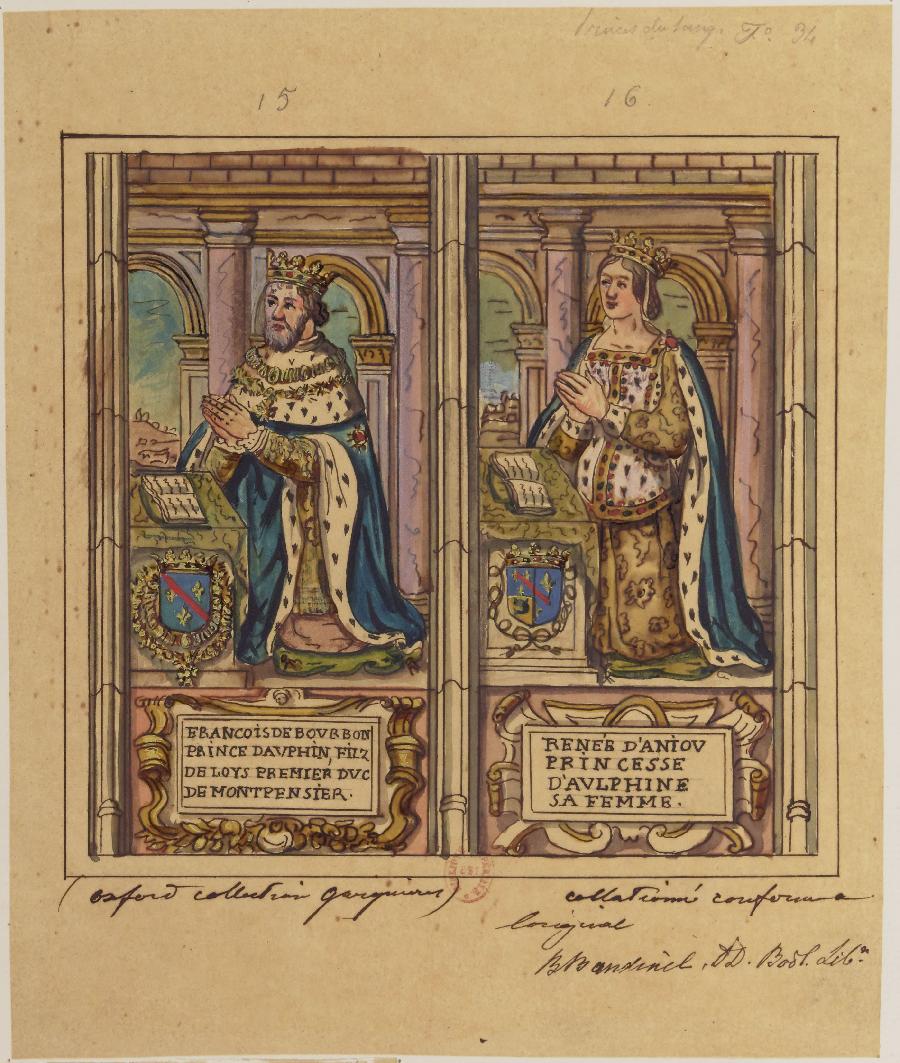 Princes du sang. Fo. 34
15
16
FRANCOIS DE BOVRBON
PRINCE DAVPHIN, FILZ
DE LOYS PREMIER DVC
DE MONTPENSIER.
RENEE D'ANIOV
PRINCESSE
D'AVLPHINE
SA FEMME.
(oxford collection gaignieres)
collationné conforme a
loriginal
B Bandinel, DD. Bodl. Libn